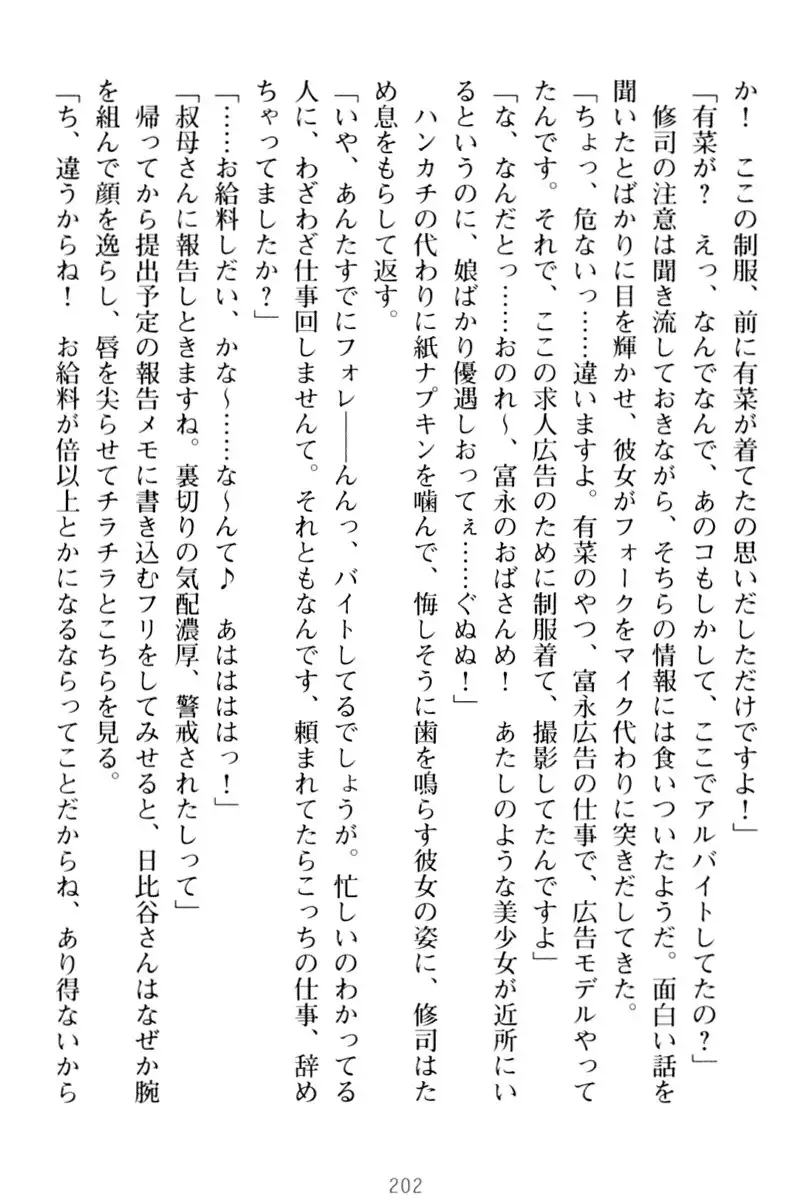 か！　ここの制服、前に有菜が着てたの思いだしただけですよ！」
「有菜が？　えっ、なんでなんで、あのコもしかして、ここでアルバイトしてたの？」
　修司の注意は聞き流しておきながら、そちらの情報には食いついたようだ。面白い話を
聞いたとばかりに目を輝かせ、彼女がフォークをマイク代わりに突きだしてきた。
「ちょっ、危ないっ……違いますよ。有菜のやつ、富永広告の仕事で、広告モデルやって
たんです。それで、ここの求人広告のために制服着て、撮影してたんですよ」
「な、なんだとっ……おのれ～、富永のおばさんめ！　あたしのような美少女が近所にい
るというのに、娘ばかり優遇しおってぇ……ぐぬぬ！」
　ハンカチの代わりに紙ナプキンを噛んで、悔しそうに歯を鳴らす彼女の姿に、修司はた
め息をもらして返す。
「いや、あんたすでにフォレ――んんっ、バイトしてるでしょうが。忙しいのわかってる
人に、わざわざ仕事回しませんて。それともなんです、頼まれてたらこっちの仕事、辞め
ちゃってましたか？」
「……お給料しだい、かな～……な～んて♪　あはははっ！」
「叔母さんに報告しときますね。裏切りの気配濃厚、警戒されたしって」
　帰ってから提出予定の報告メモに書き込むフリをしてみせると、日比谷さんはなぜか腕
を組んで顔を逸らし、唇を尖らせてチラチラとこちらを見る。
「ち、違うからね！　お給料が倍以上とかになるならってことだからね、あり得ないから
202